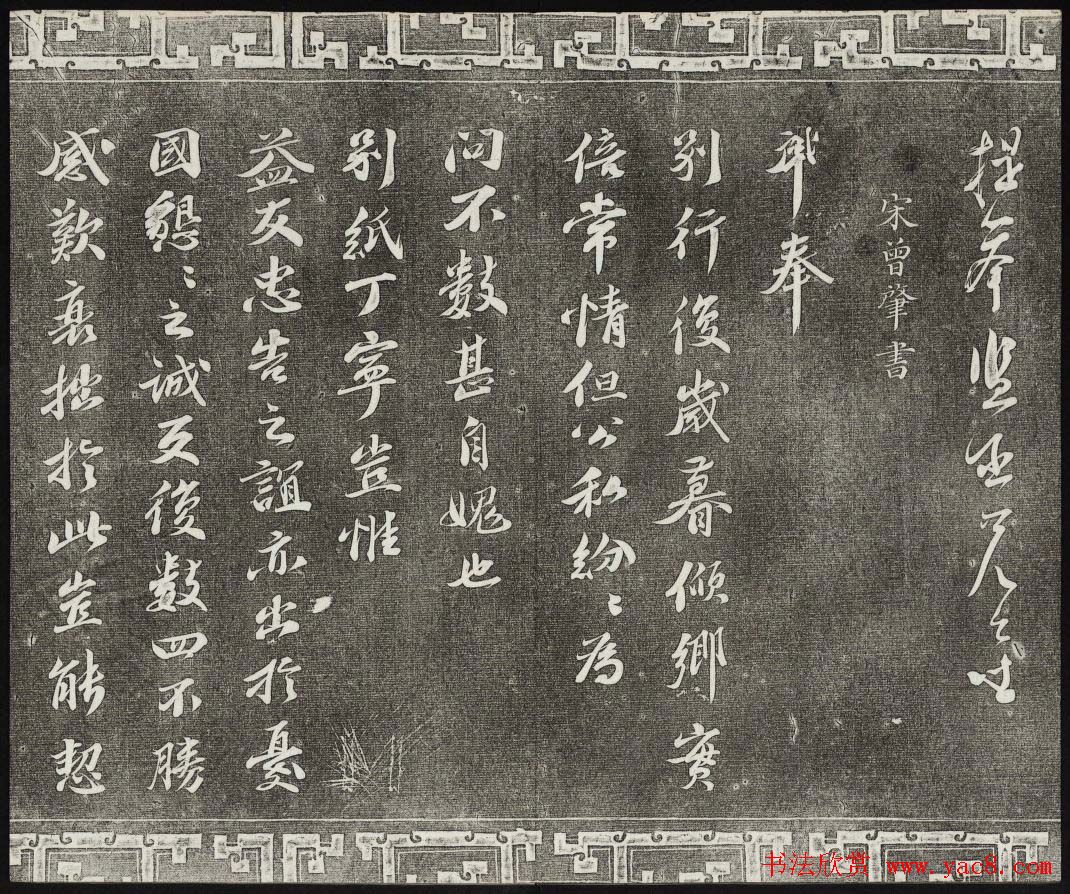 宋曾肇書
肇奉
別行復歲暮傾鄉實
倍常情但公私紛〻為
問不數甚自媿也
別紙丁寧豈惟
益友忠告之誼亦出於憂
國懇〻之誠反復數四不勝
感歎衰拙於此豈能恝
书法欣赏 www.yac8.com